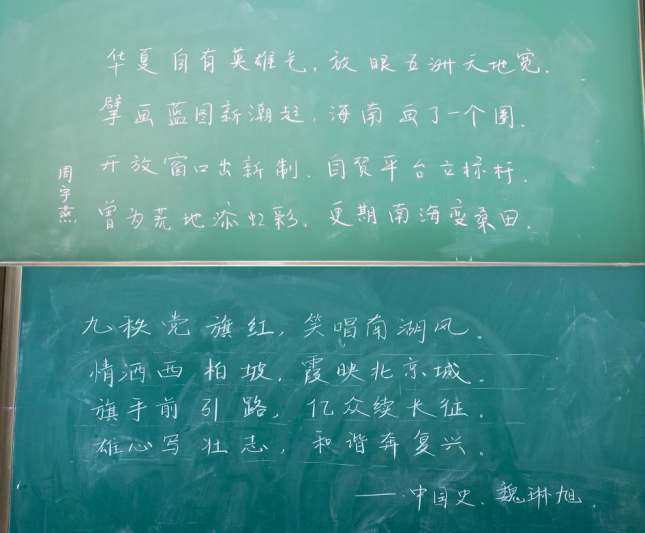 华夏自有英雄气，放眼五洲天地宽．
擘画蓝图新潮起，海南画了一个圈．
开放窗口出新制，自贸平台立标杆．
曾为荒地添虹彩，更期南海变桑田．
周宇燕
九秩党旗红，笑唱南湖风。
情洒西柏坡，霞映北京城。
旗手前引路，亿众续长征。
雄心写壮志，和谐奔复兴。
——中国史、魏琳旭．